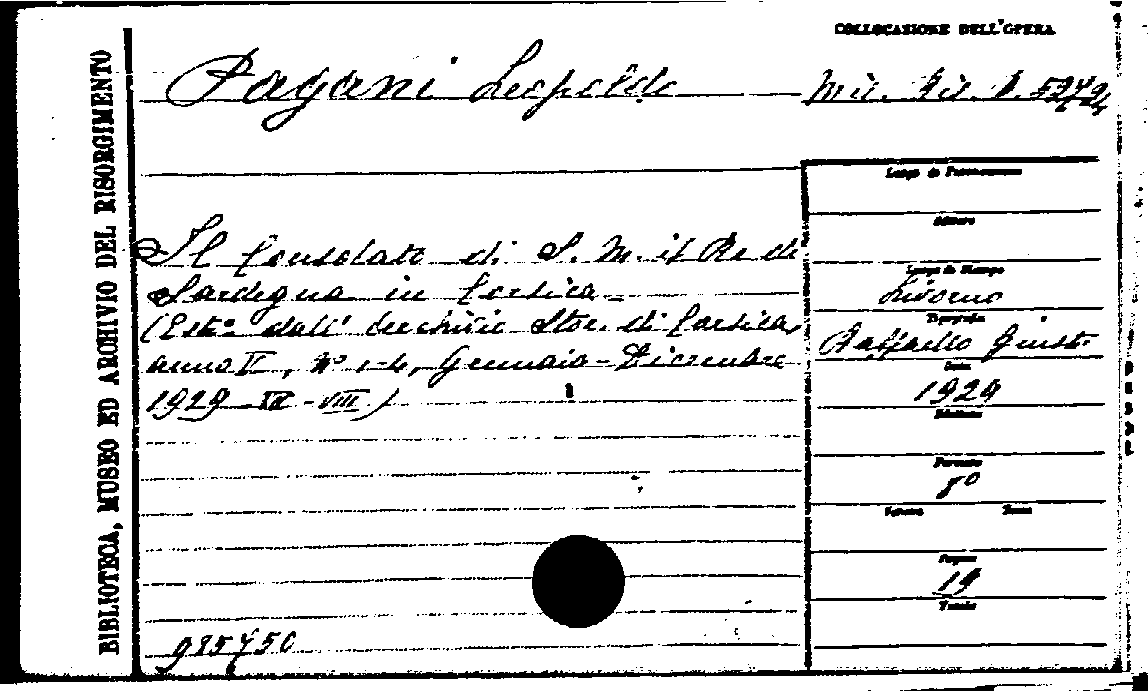 COLLOCAZIONE DELL'OPERA
Pagani Leopoldo
BIBLIOTECA, MUSEO ED ARCHIVIO DEL RISORGIMENTO
Il Consolato di S. M. il Re di
Sardegna in Corsica
(Estº dall' Archivio Stor. di Corsica,
anno V, Nº 1-4, Gennaio-Dicembre
1929 - VII - VIII)
985750
Luogo di Pubblicazione
Editore
Luogo di Stampa
Livorno
Tipografia
Raffaello Giusti
Data
1929
Edizione
Formato
8º
Volume
Tomo
Pagine
19
Tavole